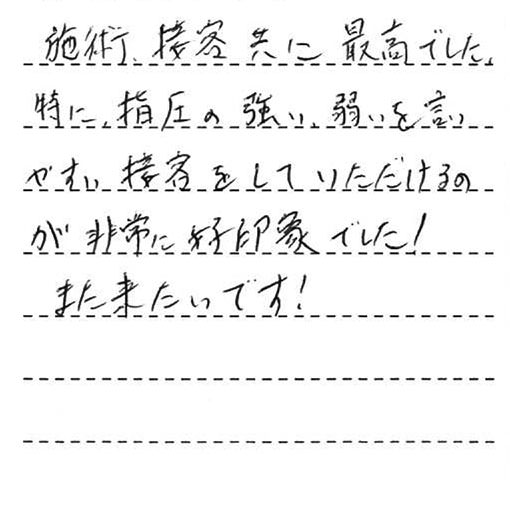 施術、接客共に最高でした。
特に、指圧の強い、弱いを言い
やすい接客をしていただけるの
が非常に好印象でした!
また来たいです!